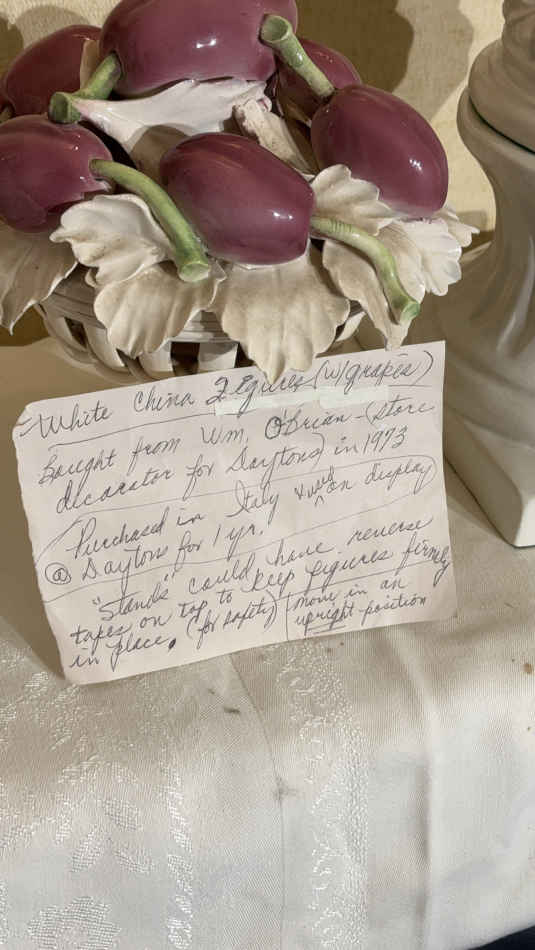 White China 2 figures (w/grapes)
Bought from Wm. O'Brian - (store
decorator for Daytons) in 1973
Purchased in Italy & used on display
@ Daytons for 1 yr.
"Stands" could have reverse
tapes on top to keep figures firmly
in place. (for safety)
move in an
upright position